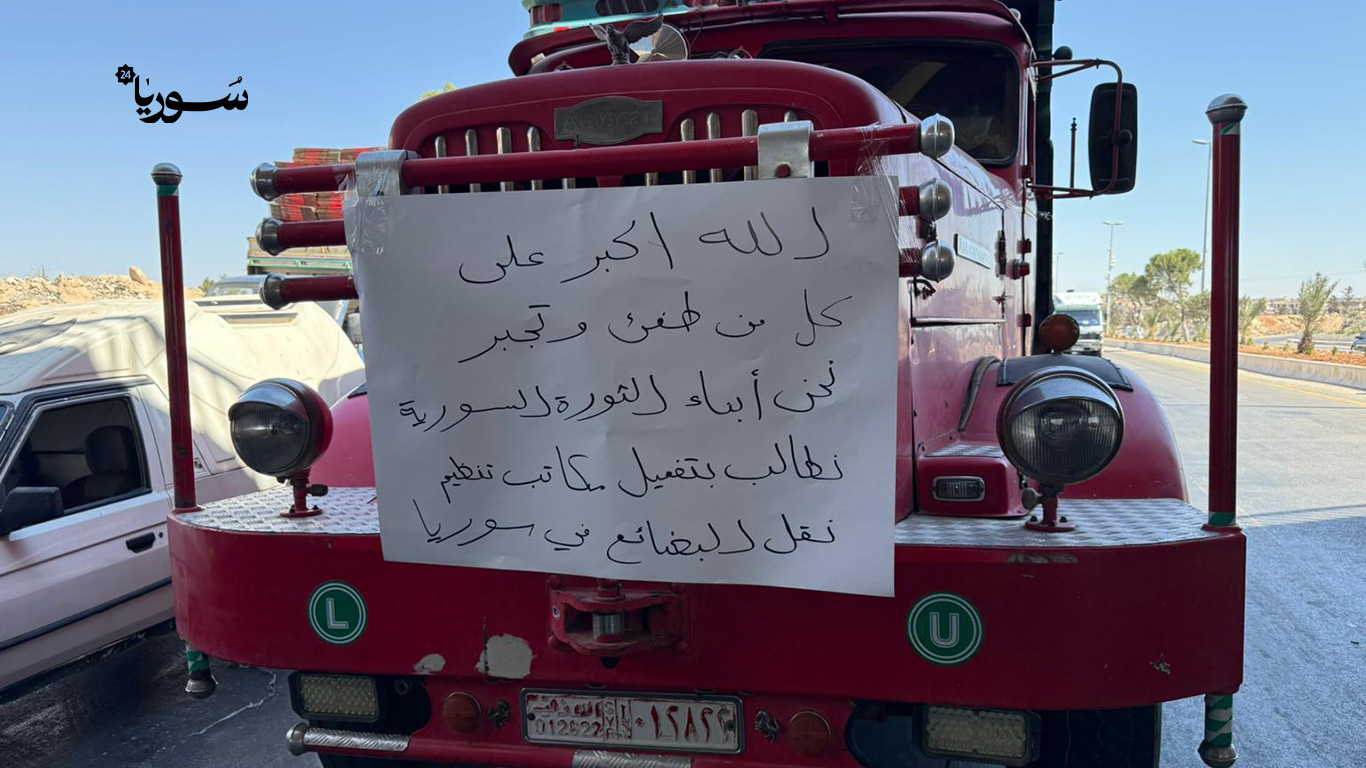 سوريا 24
الله اكبر على
كل من طغى وتجبر
نحن أبناء الثورة السورية
نطالب بتفعيل مكاتب تنظيم
نقل البضائع في سوريا
L
U
SYR
012622